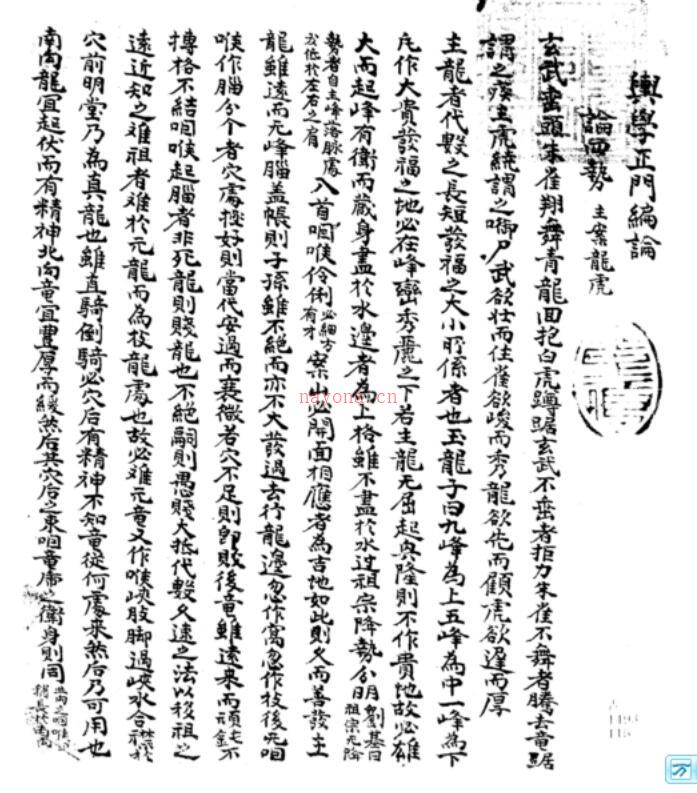 輿學正門編論
論四勢 主案龍虎
玄武垂頭朱雀翔舞青龍回抱白虎蹲踞玄武不垂者拒尸朱雀不舞者騰去竜踞
謂之嫉主虎繞謂之啣尸武欲壯而住雀欲峻而秀龍欲先而顧虎欲遲而厚
主龍者代數之長短發福之大小所係者也玉龍子曰九峰為上五峰為中一峰為下
凡作大貴發福之地必在峰巒秀麗之下若主龍无屈起與隆則不作貴地故必雄
大而起峰有衛而藏身盡於水邊者為上格雖不盡於水过祖宗降勢分明 劉基曰祖宗无降
勢者自主峰落脉處 低於左右之肩 入首咽喉伶俐 必細方有才 案山必開面相應者為吉地如此則久而善發主
龍雖遠而无峰腦盖帳則子孫雖不絕而亦不大發過去行龍邊忽作窩忽作枝後无咽
喉作腦分个者穴處極好則當代安過而衰微若穴不足則卽敗後竜雖遠來而頑鈍不
摶格不結咽喉起腦者非死龍則賤龍也不絕嗣則愚賤大抵代數久速之法以移祖之
遠近知之难祖者难於元龍而為枝龍處也故必难元竜又作喉峽肢脚過峽水合襟於
穴前明堂乃為真龍也雖直騎倒騎必穴后有精神不知竜從何處来然后乃可用也
南向龍宜起伏而有精神北向竜宜豊厚而緩然后其穴后之束咽竜虎之衛身則同